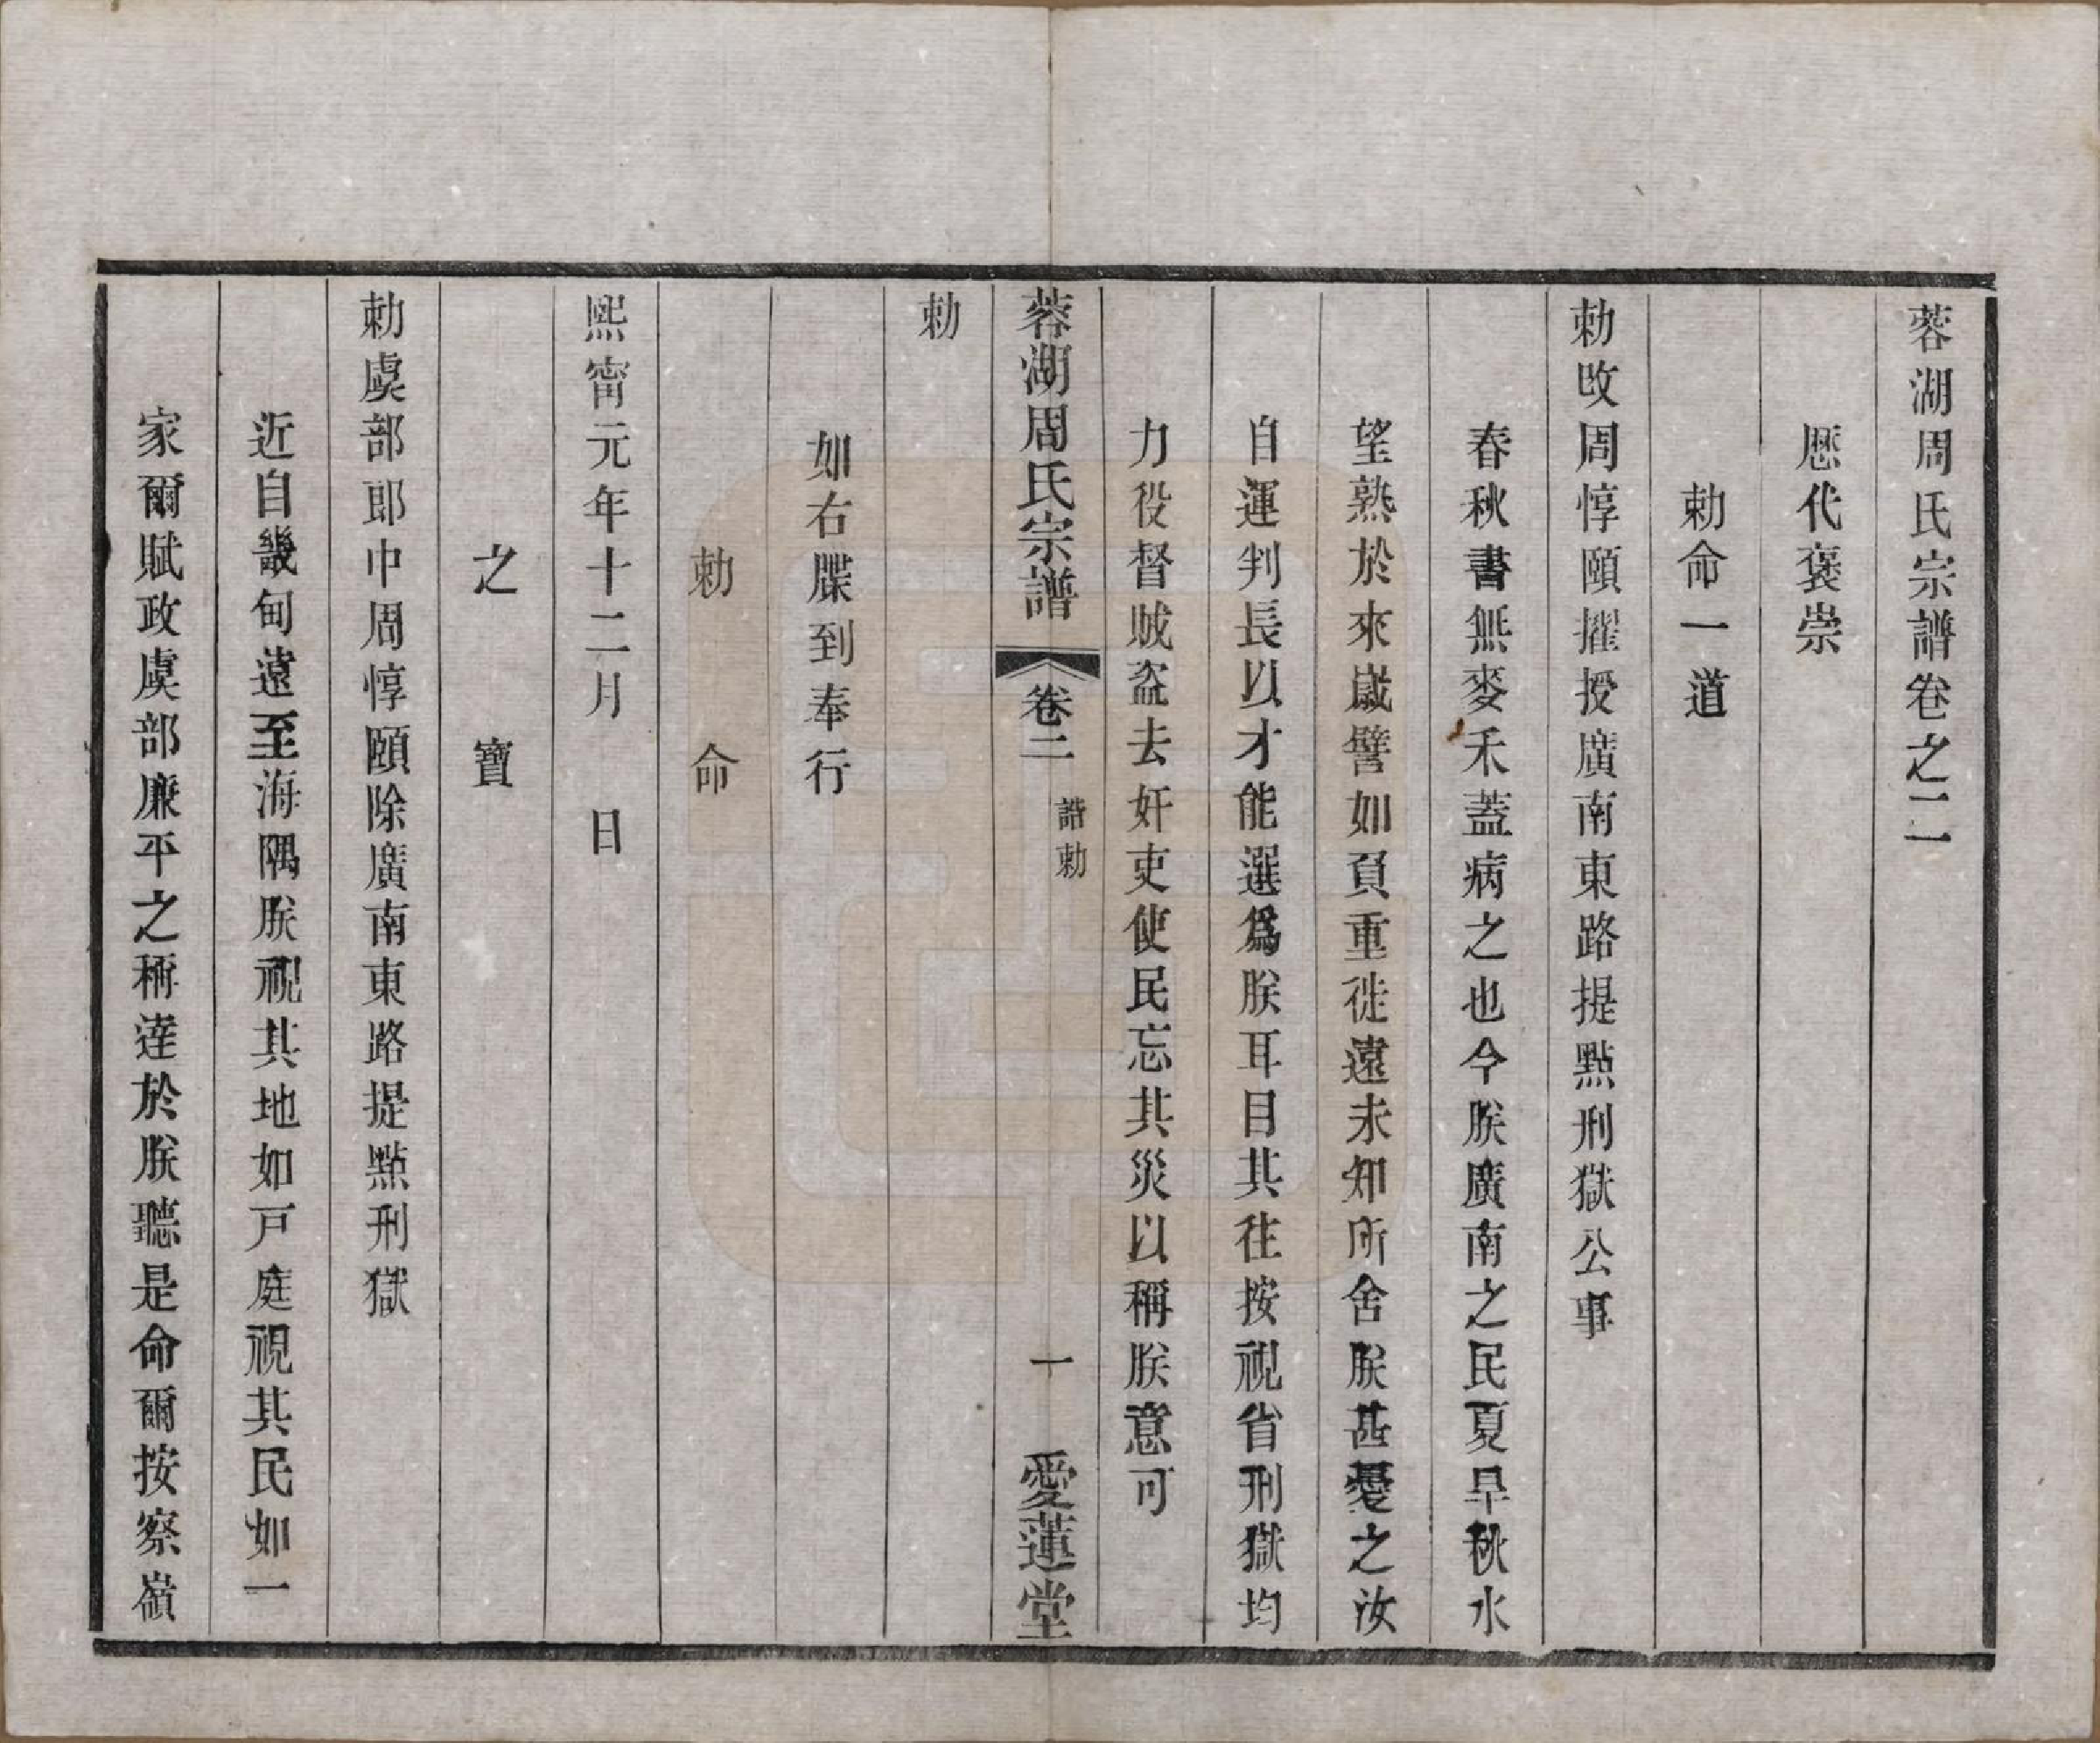 蓉湖周氏宗譜卷之二
歷代褒崇
勅命一道
勅改周惇頤擢授廣南東路提點刑獄公事
春秋書無麥禾蓋病之也今朕廣南之民夏旱秋水
望熟於來歲譬如負重徙遠未知所舍朕甚憂之汝
自運判長以才能選爲朕耳目其往按視省刑獄均
力役督賊盜去奸吏使民忘其災以稱朕意可
蓉湖周氏宗譜 卷二 誥勅 一 愛蓮堂
勅
如右牒到奉行
勅命
熙甯元年十二月 日
之寶
勅虞部郎中周惇頤除廣南東路提點刑獄
近自畿甸遠至海隅朕視其地如戸庭視其民如一
家爾賦政虞部廉平之稱達於朕聽是命爾按察嶺